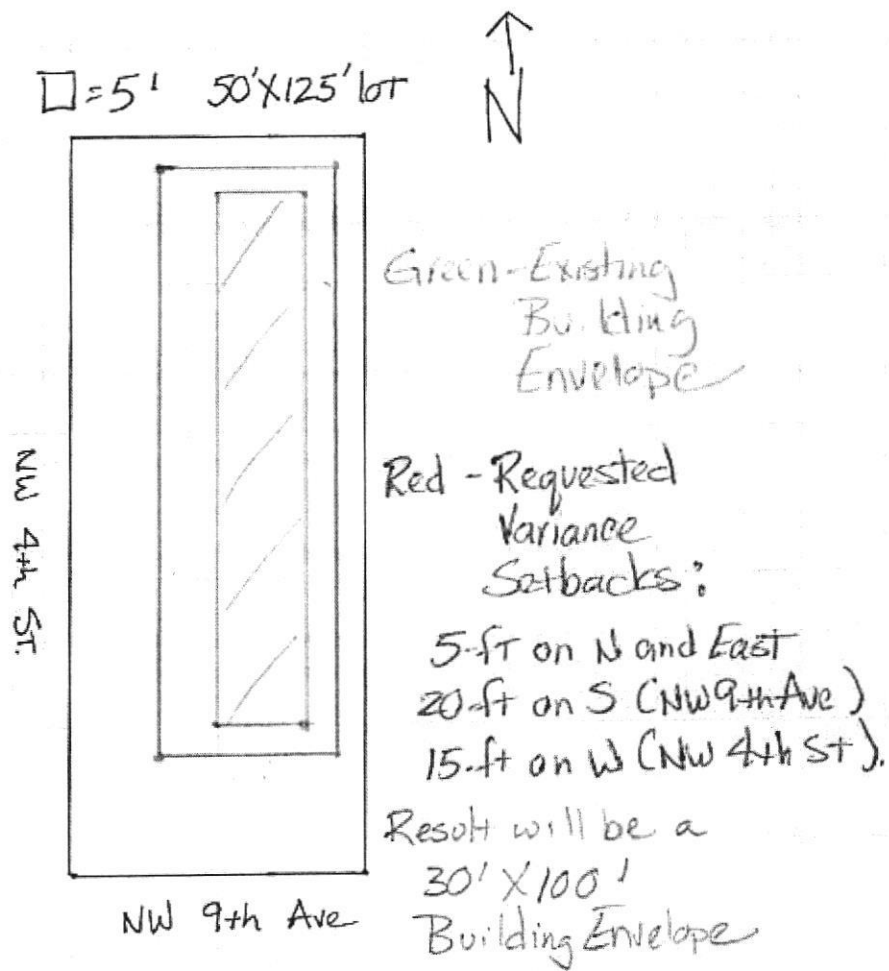 □=5' 50'X125' lot
N
Green-Existing
Building
Envelope
Red - Requested
Variance
Setbacks:
5-ft on N and East
20-ft on S (NW 9th Ave)
15-ft on W (NW 4th St).
Result will be a
30' X 100'
Building Envelope
NW 4th ST.
NW 9th Ave